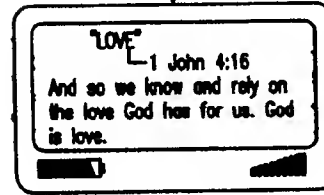 "LOVE"
1 John 4:16
And so we know and rely on
the love God has for us. God
is love.